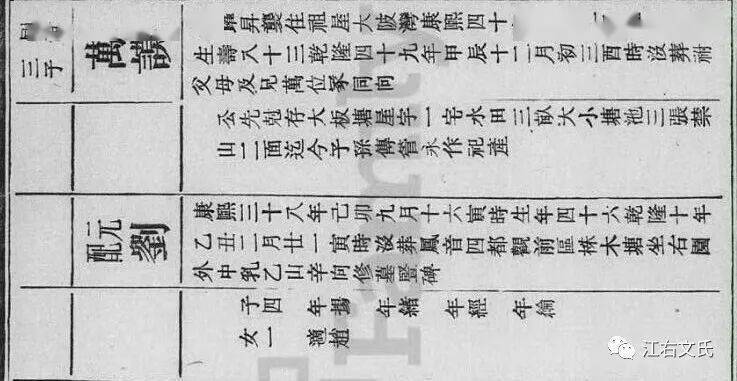 三子
萬
躍昇襲住祖屋大陂灣康熙四十
生壽八十三乾隆四十九年甲辰十二月初三酉時沒葬祔
父母及兄萬位冢同向
公先剋存大板塘屋宇一宅水田三畝大小塘池三張禁
山一面迄今子孫傳管永作祀產
元配
劉
康熙三十八年己卯九月十六寅時生年四十六乾隆十年
乙丑二月廿一寅時沒葬鳳音四都觀前區株木塘坐右園
外中乳乙山辛向修墓豎碑
子四 年揚 年緒 年經 年綸
女一 適趙
江右文氏